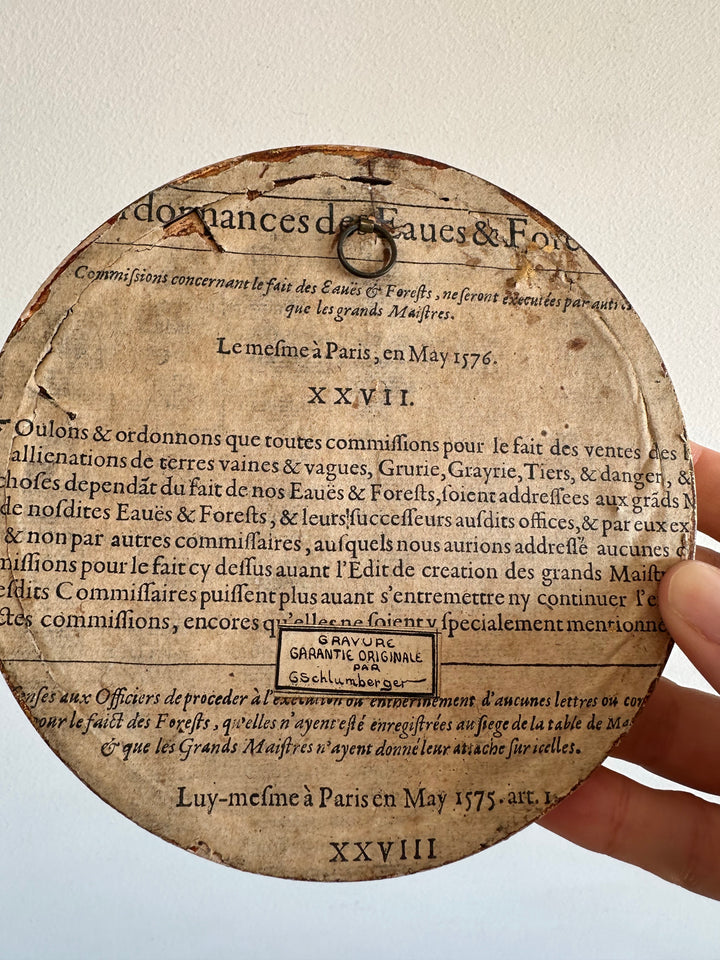 rdonnances des Eaues & Fore
Commiſsions concernant le fait des Eauës & Foreſts, ne ſeront executées par autr
que les grands Maiſtres.
Le meſme à Paris, en May 1576.
XXVII.
Oulons & ordonnons que toutes commiſſions pour le fait des ventes des b
allienations de terres vaines & vagues, Grurie, Grayrie, Tiers, & danger, &
choſes dependãt du fait de nos Eauës & Foreſts, ſoient addreſſées aux grãds M
de noſdites Eauës & Foreſts, & leurs ſucceſſeurs auſdits offices, & par eux ex
& non par autres commiſſaires, auſquels nous aurions addreſſé aucunes c
miſſions pour le fait cy deſſus auant l'Edit de creation des grands Maiſt
eſdits Commiſſaires puiſſent plus auant s'entremettre ny continuer l'e
ctes commiſſions, encores qu'elles ne ſoient y ſpecialement mentionne
GRAVURE
GARANTIE ORIGINALE
PAR
GSchlumberger
enſes aux Officiers de proceder à l'execution ou entherinement d'aucunes lettres ou con
pour le faict des Foreſts, qu'elles n'ayent eſté enregiſtrées au ſiege de la table de Ma
& que les Grands Maiſtres n'ayent donné leur attache ſur icelles.
Luy-meſme à Paris en May 1575. art. 1
XXVIII